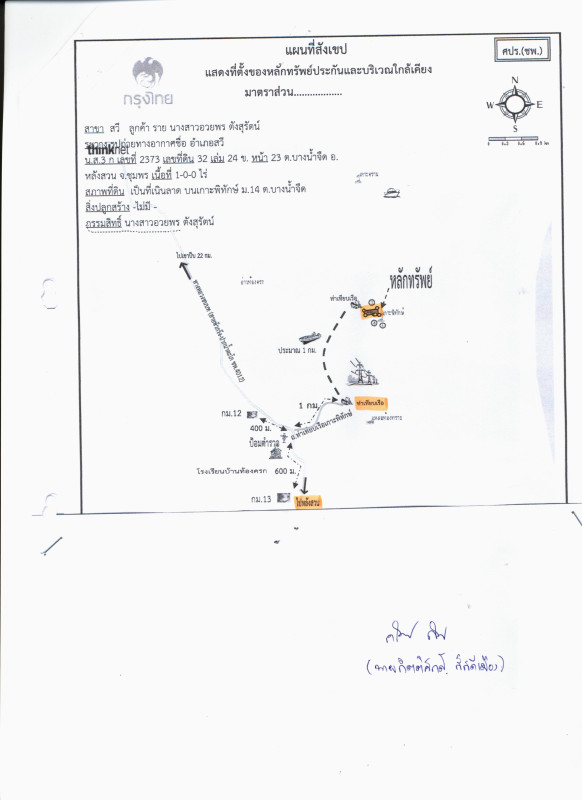 แผนที่สังเขป
ศปร.(ชพ.)
แสดงที่ตั้งของหลักทรัพย์ประกันและบริเวณใกล้เคียง
มาตราส่วน..................
กรุงไทย
N
W E
S
สาขา สวี ลูกค้า ราย นางสาวอวยพร ดังสุรัตน์
ระวางรูปถ่ายทางอากาศชื่อ อำเภอสวี
thinknet
น.ส.3 ก เลขที่ 2373 เลขที่ดิน 32 เล่ม 24 ข. หน้า 23 ต.บางน้ำจืด อ.
หลังสวน จ.ชุมพร เนื้อที่ 1-0-0 ไร่
สภาพที่ดิน เป็นที่เนินลาด บนเกาะพิทักษ์ ม.14 ต.บางน้ำจืด
สิ่งปลูกสร้าง -ไม่มี -
กรรมสิทธิ์ นางสาวอวยพร ดังสุรัตน์
22 กม.
หลักทรัพย์
ท่าเทียบเรือ
เกาะพิทักษ์
ประมาณ 1 กม.
1 กม.
ท่าเทียบเรือ
กม.12
400 ม.
ถ.ท่าเทียบเรือเกาะพิทักษ์
ป้อมตำรวจ
โรงเรียนบ้านท้องครก 600 ม.
กม.13
ไปหลังสวน